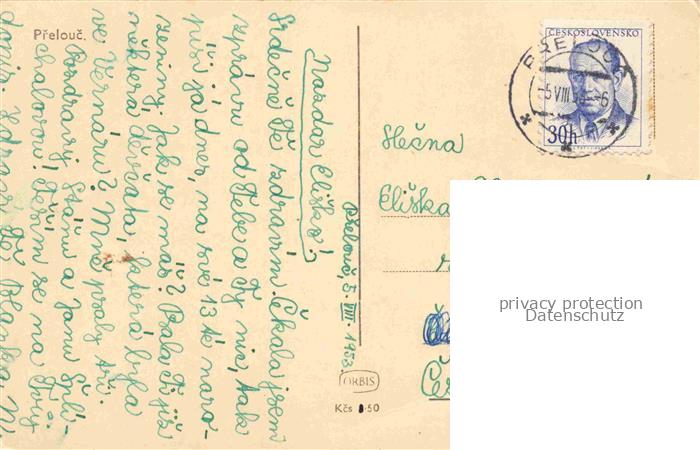 Přelouč.
Nazdar Eliško!
Srdečně Tě zdravím. Čekala jsem
zprávu od Tebe a Ty nic, tak
píši já dnes, na své 13 té naro-
zeniny. Jak se máš? Psala Ti již
některá děvčata, která byla
ve Vernáru? Mně psaly tři.
Pozdravuj Stáňu a Janu
chalovou! Těším se na Tvůj
Zdraví Tě Blanka N
Přelouč 5. VIII. 1953
ORBIS
Kčs 50
ČESKOSLOVENSKO
PŘELOUČ
-5 VIII 53 -6
30h
Slečna
Eliška
privacy protection
Datenschutz